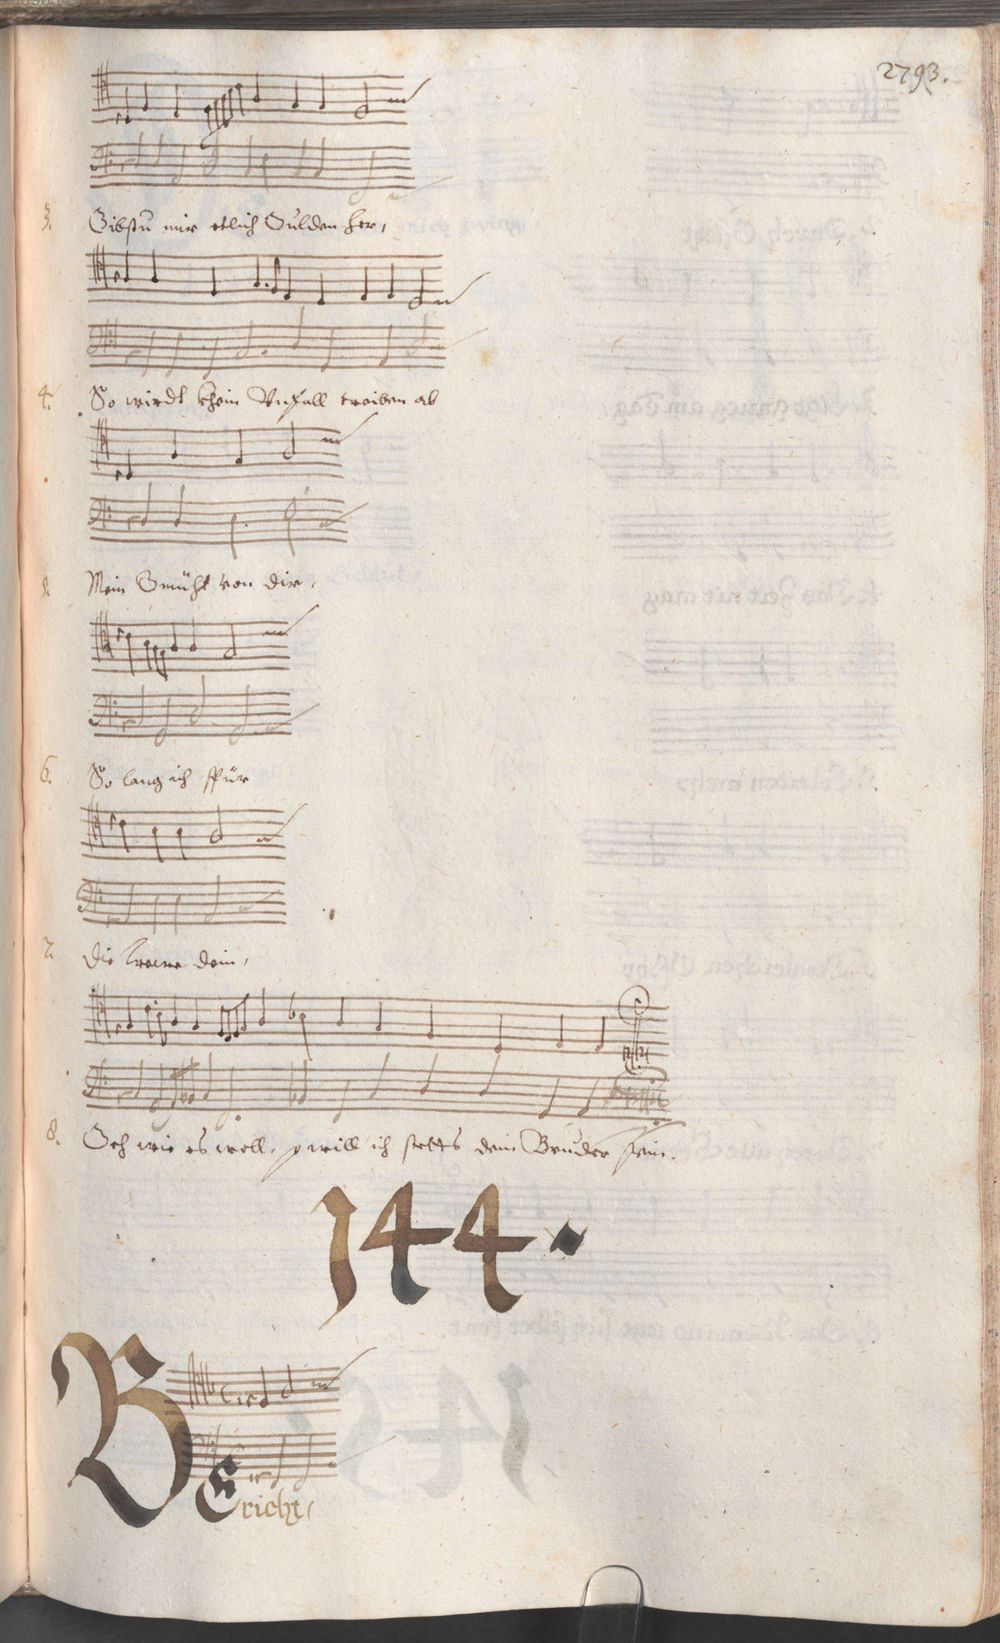 2793.
3. Gibstu mir etlich Gulden her,
4. So wirdt khein Unfall treiben ab
5. Mein Gmüht von dir,
6. So lang ich spür
7. Die trewe dein,
8. Geh wie es woll, so will ich stetts dein Bruder sein.
144.
BEricht,